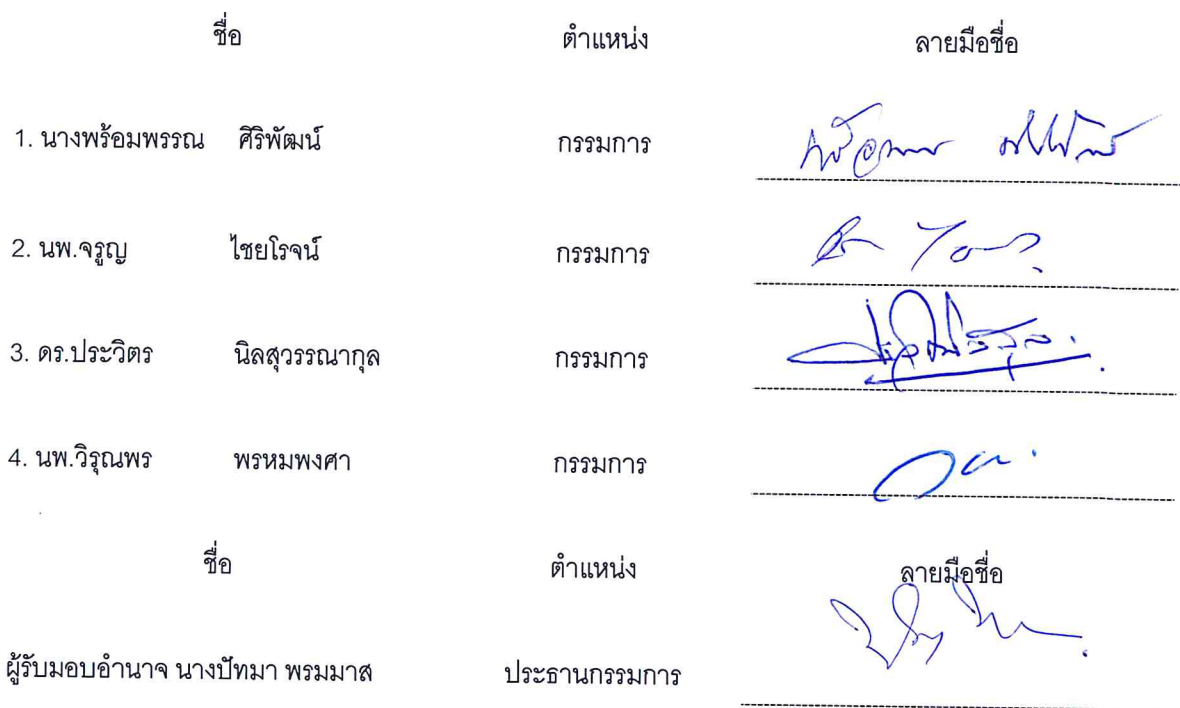 ชื่อ ตำแหน่ง ลายมือชื่อ
1. นางพร้อมพรรณ ศิริพัฒน์ กรรมการ
2. นพ.จรูญ ไชยโรจน์ กรรมการ
3. ดร.ประวิตร นิลสุวรรณากุล กรรมการ
4. นพ.วิรุณพร พรหมพงศา กรรมการ
ชื่อ ตำแหน่ง ลายมือชื่อ
ผู้รับมอบอำนาจ นางปัทมา พรมมาส ประธานกรรมการ